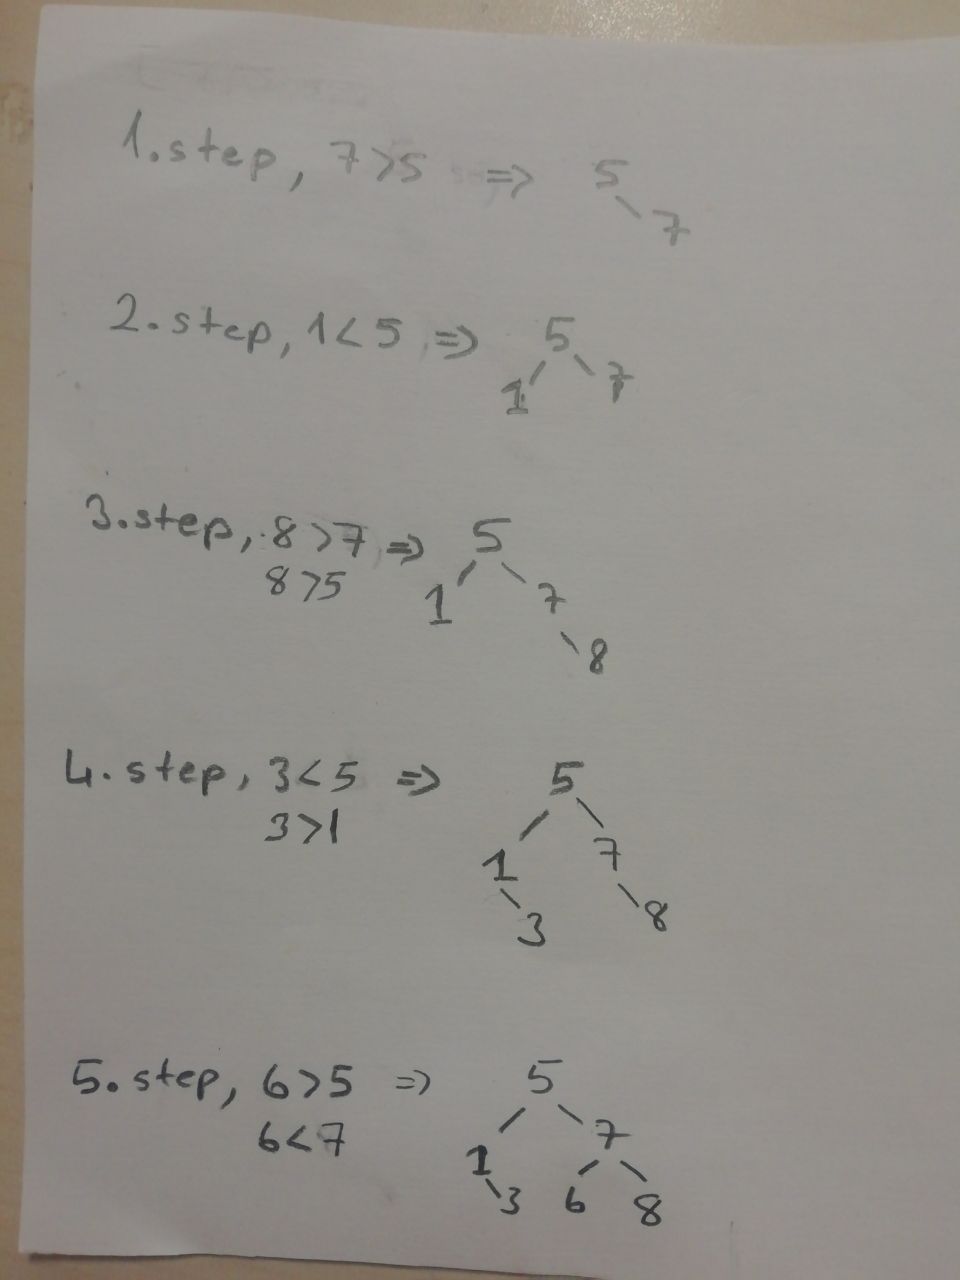 1.step, 7>5 => 5
7
2.step, 1<5 => 5
1 7
3.step, 8>7 => 5
8>5 1 7
8
4.step, 3<5 => 5
3>1 1 7
3 8
5.step, 6>5 => 5
6<7 1 7
3 6 8